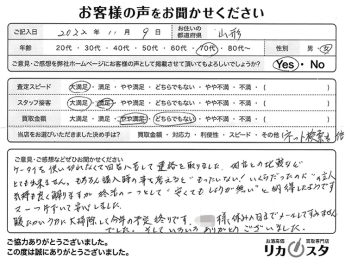 お客様の声をお聞かせください
ご記入日 2022年 11月 9日 お住いの都道府県 山形
年齢 20代 30代 40代 50代 60代 70代 80代〜 性別 男・女
ご意見・ご感想を弊社ホームページにお客様の声として掲載させて頂いてもよろしいでしょうか? Yes・No
査定スピード 大満足・満足・やや満足・どちらでもない・やや不満・不満・( )
スタッフ接客 大満足・満足・やや満足・どちらでもない・やや不満・不満・( )
買取金額 大満足・満足・やや満足・どちらでもない・やや不満・不満・( )
当店をお選びいただきました決め手は? 買取金額・対応力・利便性・スピード・その他(ネット検索も他
ご意見・ご感想などぜひお聞かせください
ケータイも使い切れなくて四苦八苦して連絡を取りました。他店との比較など
とても出来ません。もちろん購入時の事を考えると"もったいない!いくらだったのに"の主人
気持も良く解りますが 終活の一つとして"安くても しょうが無い"と納得したようです
様、休みの日までメールですみません
でした。そしていろいろありがとうございました。
ご協力ありがとうございました。
この度は誠にありがとうございました。
お酒高価買取専門店
リカスタ